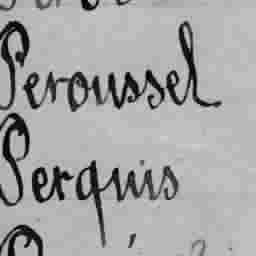 Peroussel
Perquis